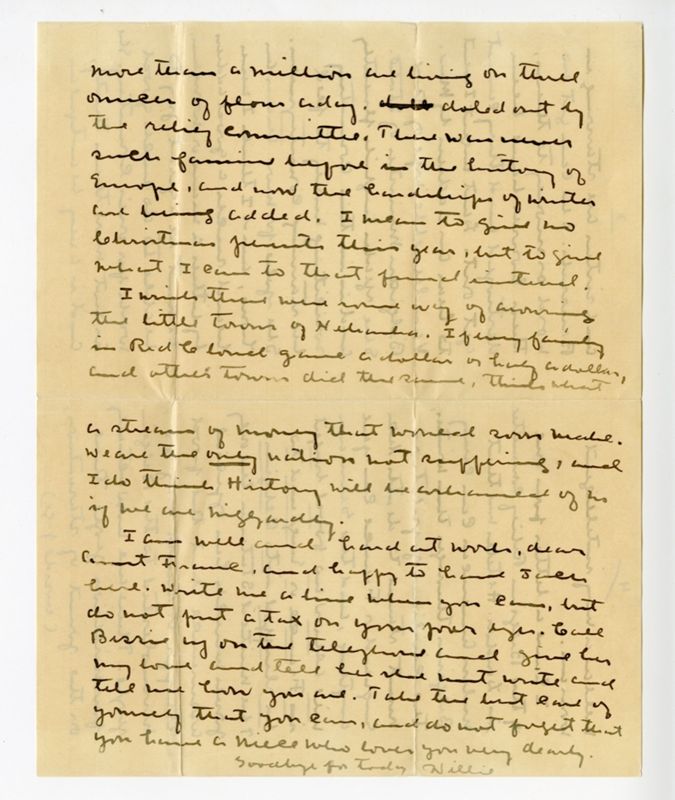 more than a million are living on three
ounces of flour a day, doled out by
the relief committee. There was never
such famine before in the history of
Europe, and now the hardships of winter
are being added. I mean to give no
Christmas presents this year, but to give
what I can to that fund instead.
I wish there were some way of arousing
the little towns of Nebraska. If every family
in Red Cloud gave a dollar or half a dollar,
and other towns did the same, think what
a stream of money that would soon make.
We are the only nation not suffering, and
I do think History will be ashamed of us
if we are niggardly.
I am well and hard at work, dear
Aunt Franc, and happy to have Jack
here. Write me a line when you can, but
do not put a tax on your poor eyes. Call
Bessie up on the telephone and give her
my love and tell her she must write and
tell me how you are. Take the best care of
yourself that you can, and do not forget that
you have a niece who loves you very dearly.
Goodbye for today Willie